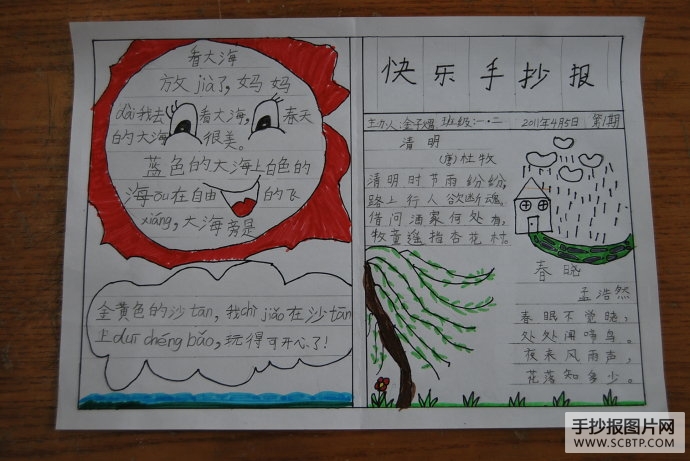 看大海
放jià了,妈妈
dài我去看大海,春天
的大海很美。
蓝色的大海上白色的
海ōu在自由的飞
xiáng,大海旁是
金黄色的沙tān,我chì jiǎo在沙tān
上duī chéng bǎo,玩得可开心了!
快乐手抄报
主办人:金子熠 班级:一·二 2011年4月5日 第1期
清明
(唐)杜牧
清明时节雨纷纷,
路上行人欲断魂。
借问酒家何处有,
牧童遥指杏花村。
春晓
孟浩然
春眠不觉晓,
处处闻啼鸟。
夜来风雨声,
花落知多少。
手抄报图片网
WWW.SCBTP.COM